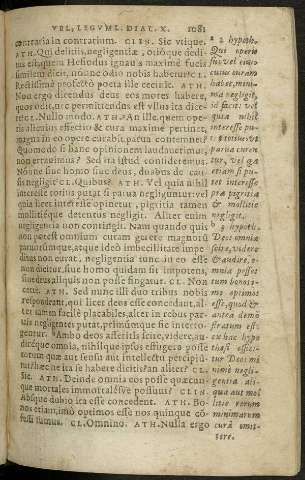 VEL, LEGVML. DIAL. X. 1081
contraria in contrarium. CLIN. Sic vtique.
ATH. Qui delitiis, negligentiæ, otióque dedi-
tus est, quem Hesiodus ignauis maximè fucis
similem dicit, nónne odio nobis haberur? CL.
Rectissimè profectò poeta ille cecinit. ATH.
Non ergo dicendus deus eos mores habere,
quos odit, nec permittendus est vllus ita dice-
re. CL. Nullo modo. ATH. An ille, quem ope-
ris alienius effectio & cura maximè pertinet,
magna in eo opere curabit, parua contemnet?
Quomodo si hanc opinionem laudauerimus,
non errauimus? Sed ita istud consideremus.
Nónne siue homo siue deus, duabus de cau-
sis negligit? CL. Quibus? ATH. Vel quia nihil
interesse toti° putat si parua negligantur: vel
quia licet interesse opinetur, pigritia tamen
mollitiéque detentus negligit. Aliter enim
negligentia non contingit. Nam quando quis
non potest omnium curam gerere magnorū
paruorúmque, atque ideo imbecillitate impe-
ditus non curat, negligentia tunc in eo esse
non dicitur, siue homo quidam sit impotens,
siue deus, aliquis non posse singatur. CL. Non
certe. ATH. Sed nunc illi duo tribus nobis
respondeant, qui licet deos esse concedant, al-
ter tamen facilè placabiles, alter in rebus par-
uis negligentes putat, primúmque sic interro-
gentur. Ambo deos asseritis scire, videre, au-
diréque omnia, nihilque ipsos effugere posse
eorum quæ aut sensu aut intellectu percipiū-
tur. hæcne ita se habere dicitis? an aliter? CL.
Sic. ATH. Deinde omnia eos posse quæcun-
que mortales immortalésve possunt? CLIN.
Absque dubio ita esse concedent. ATH. Bo-
nos etiam, imò optimos esse nos quinque cō-
fessi sumus. CL. Omnino. ATH. Nulla ergo
2 hypoth.
Qui operis
sui vel to-
tius curam
habet, mini-
ma negligit,
id facit vel
quia nihil
interesse pu-
tet
parua curē-
tur, vel ga
etiam si pu-
tet interesse
pra pigritia
& mollitie
negligit.
3 hypoth.
Deos omnia
scire, videre
& audire, o-
mnia posse
tum bonos-
imo optimos
esse, quod &
antea demō
stratum est:
ex hac hypo
thesi effici-
tur Deos mi
nimè negli-
gentia ali-
qua aut mol
litie rerum
minimarum
curā omit-
tere.